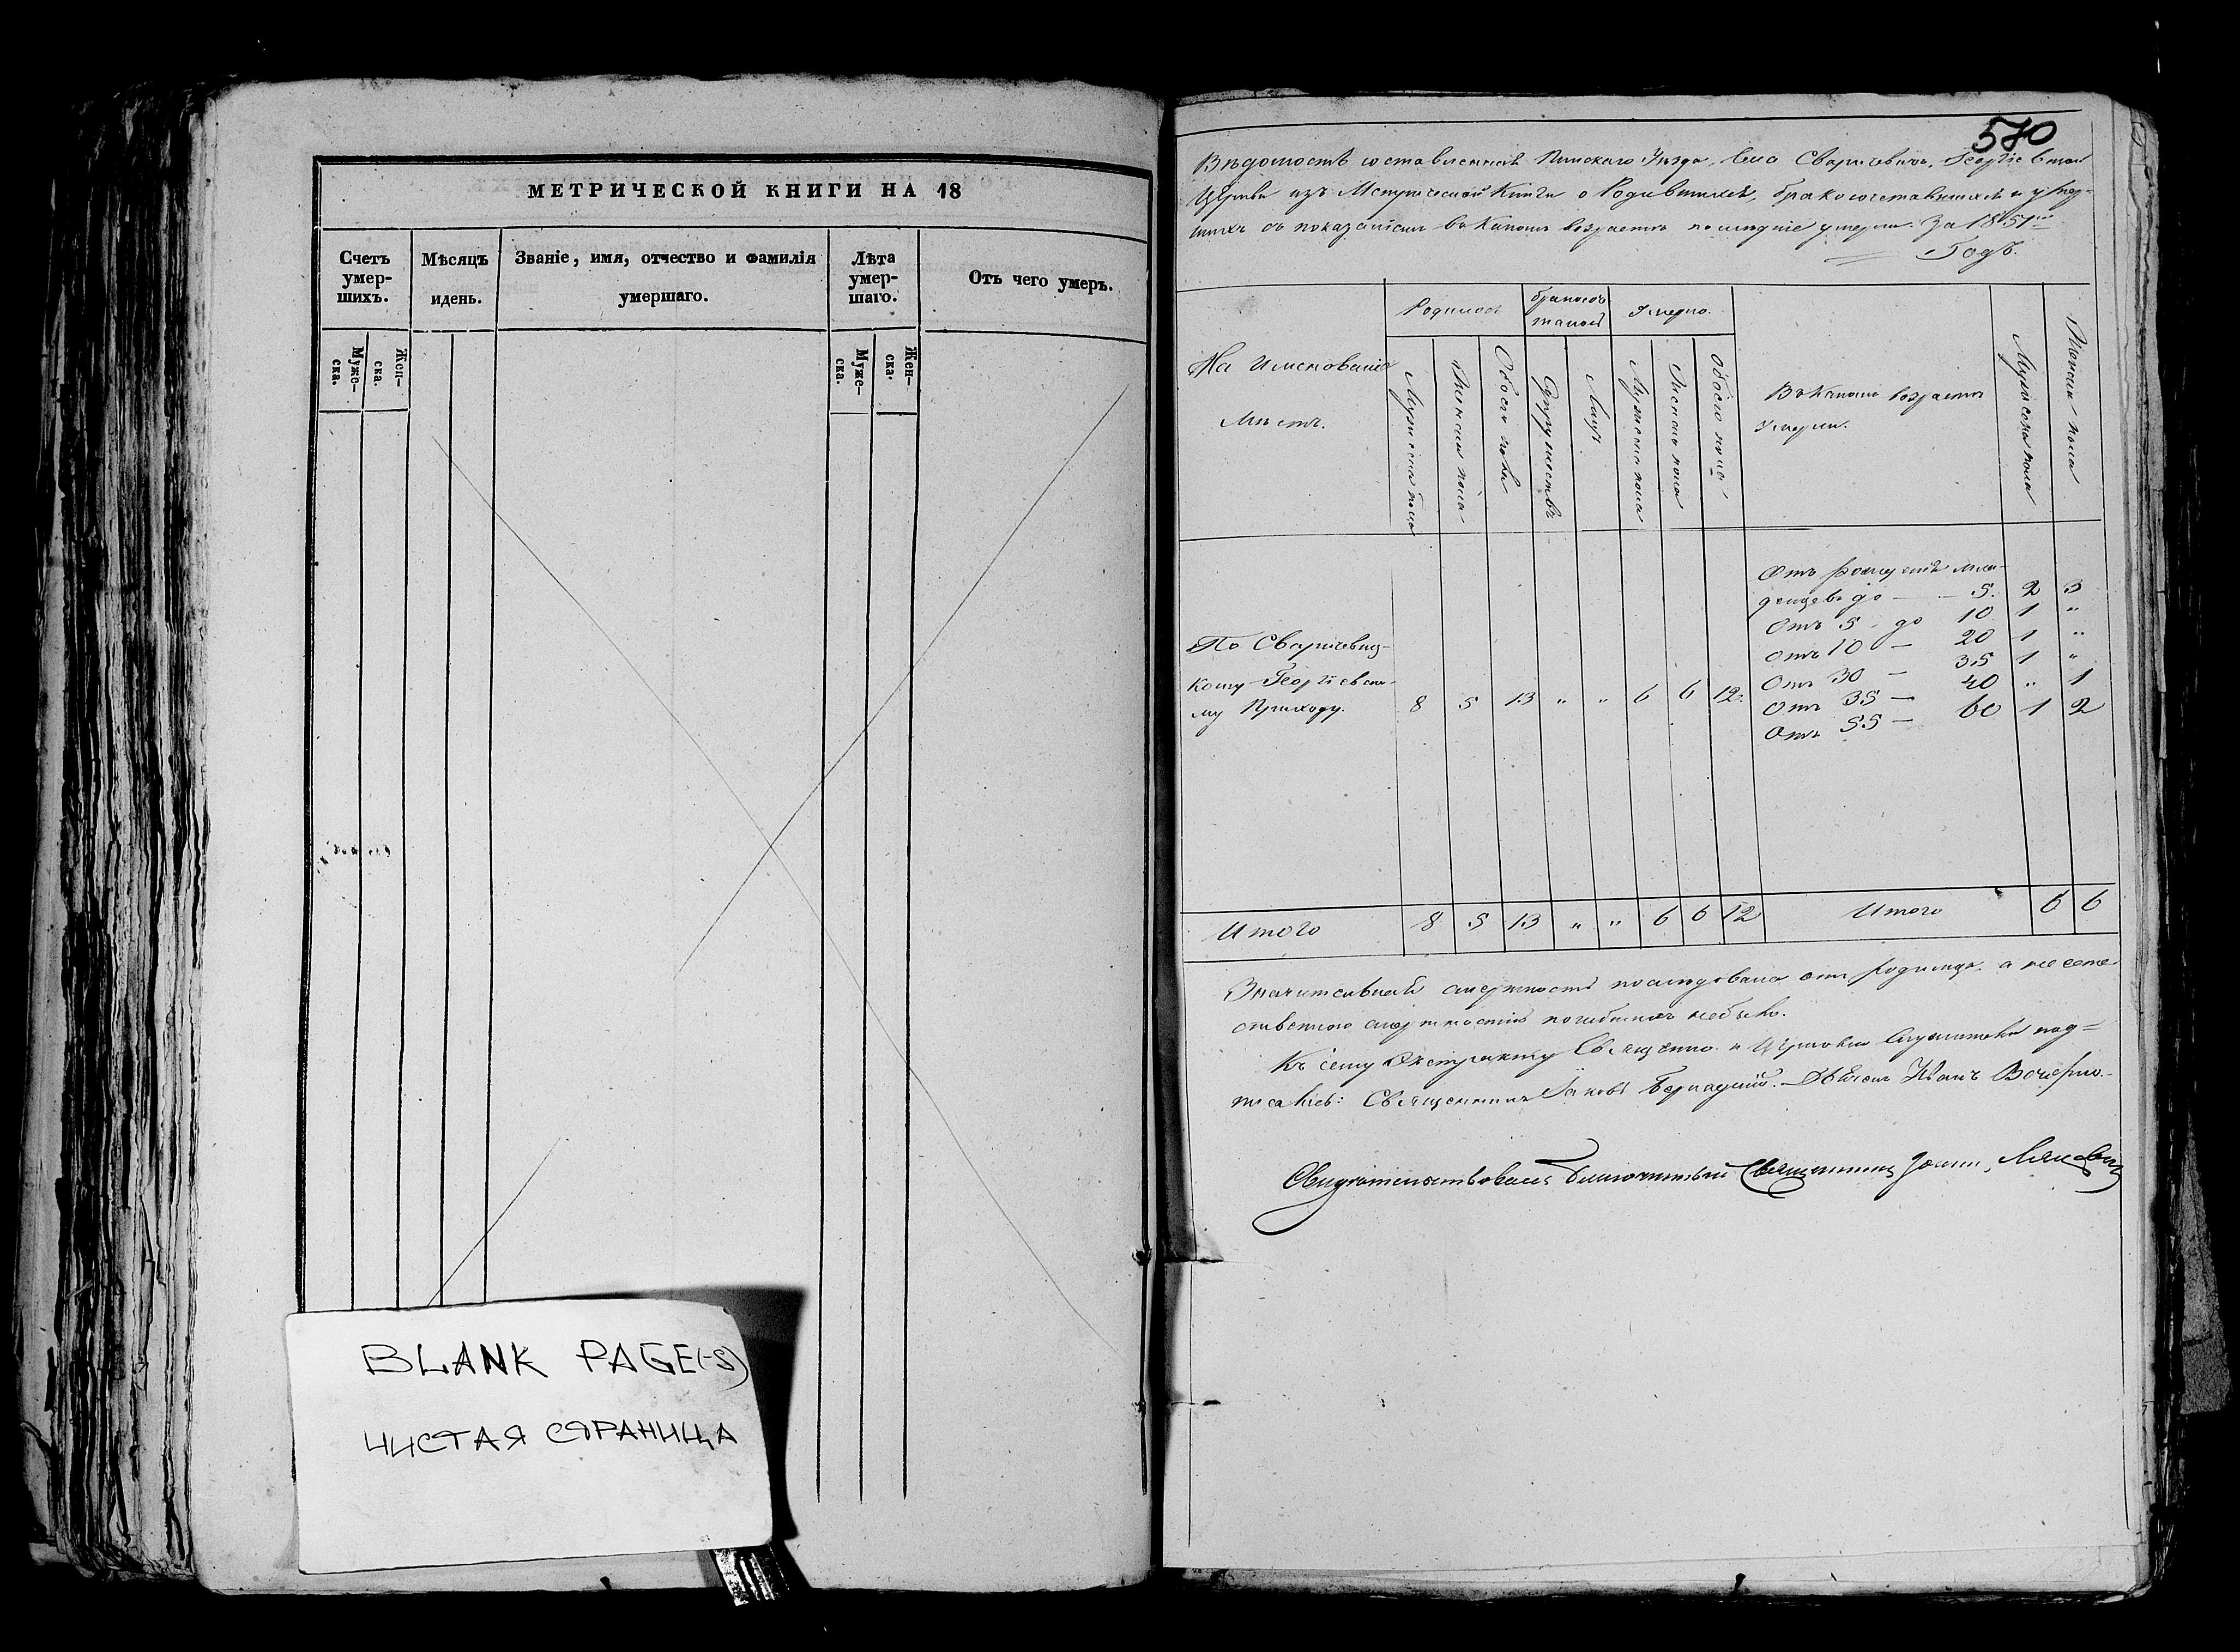 МЕТРИЧЕСКОЙ КНИГИ НА 18
Счетъ умер-шихъ.
Мѣсяцъ идень.
Званіе, имя, отчество и фамилія умершаго.
Лѣта умер-шаго.
Отъ чего умеръ.
Муже-ска.
Жен-ска.
Муже-ска.
Жен-ска.
BLANK PAGE(-S)
ЧИСТАЯ СТРАНИЦА
570
Вѣдомость составленная Пинскаго Уѣзда, Села Сварицевичъ, Георгіевской
Церкви изъ Метрической Книги о Родившихся, бракосочетавшихся и умер-
шихъ съ показаніемъ въ какомъ возрастѣ послѣдніе умерли. За 1851й
Годъ.
На Именованіе Мѣстъ.
Родилось
Бракосоч
Умерло.
Мужеска пола
Женска пола
Обоего пола
Супружествъ
Лицъ
Мужеска пола
Женска пола
Обоего пола
Въ Какомъ возрастѣ Умерли.
Мужеска пола
Женска пола
По Сварицевиц-
кому Георгіевско-
му Приходу. 8 5 13 " " 6 6 12.
Отъ рожденія мла-
денцевъ до — 5. 2 3
Отъ 5 - до 10 1 "
Отъ 10 — 20 1 "
Отъ 30 — 35 1 "
Отъ 35 — 40 " 1
Отъ 55 — 60 1 2
Итого 8 5 13 " " 6 6 12 Итого 6 6
Значительная смертность последовала отъ родимца, а не есте-
ственною смертностію погибшихъ небыло.
Къ сему Экстракту Священно и Церковно Служители под=
писались: Священникъ Іаковъ Дьячекъ Иванъ
Свидѣтельствовалъ Благочинный Священникъ Іоаннъ